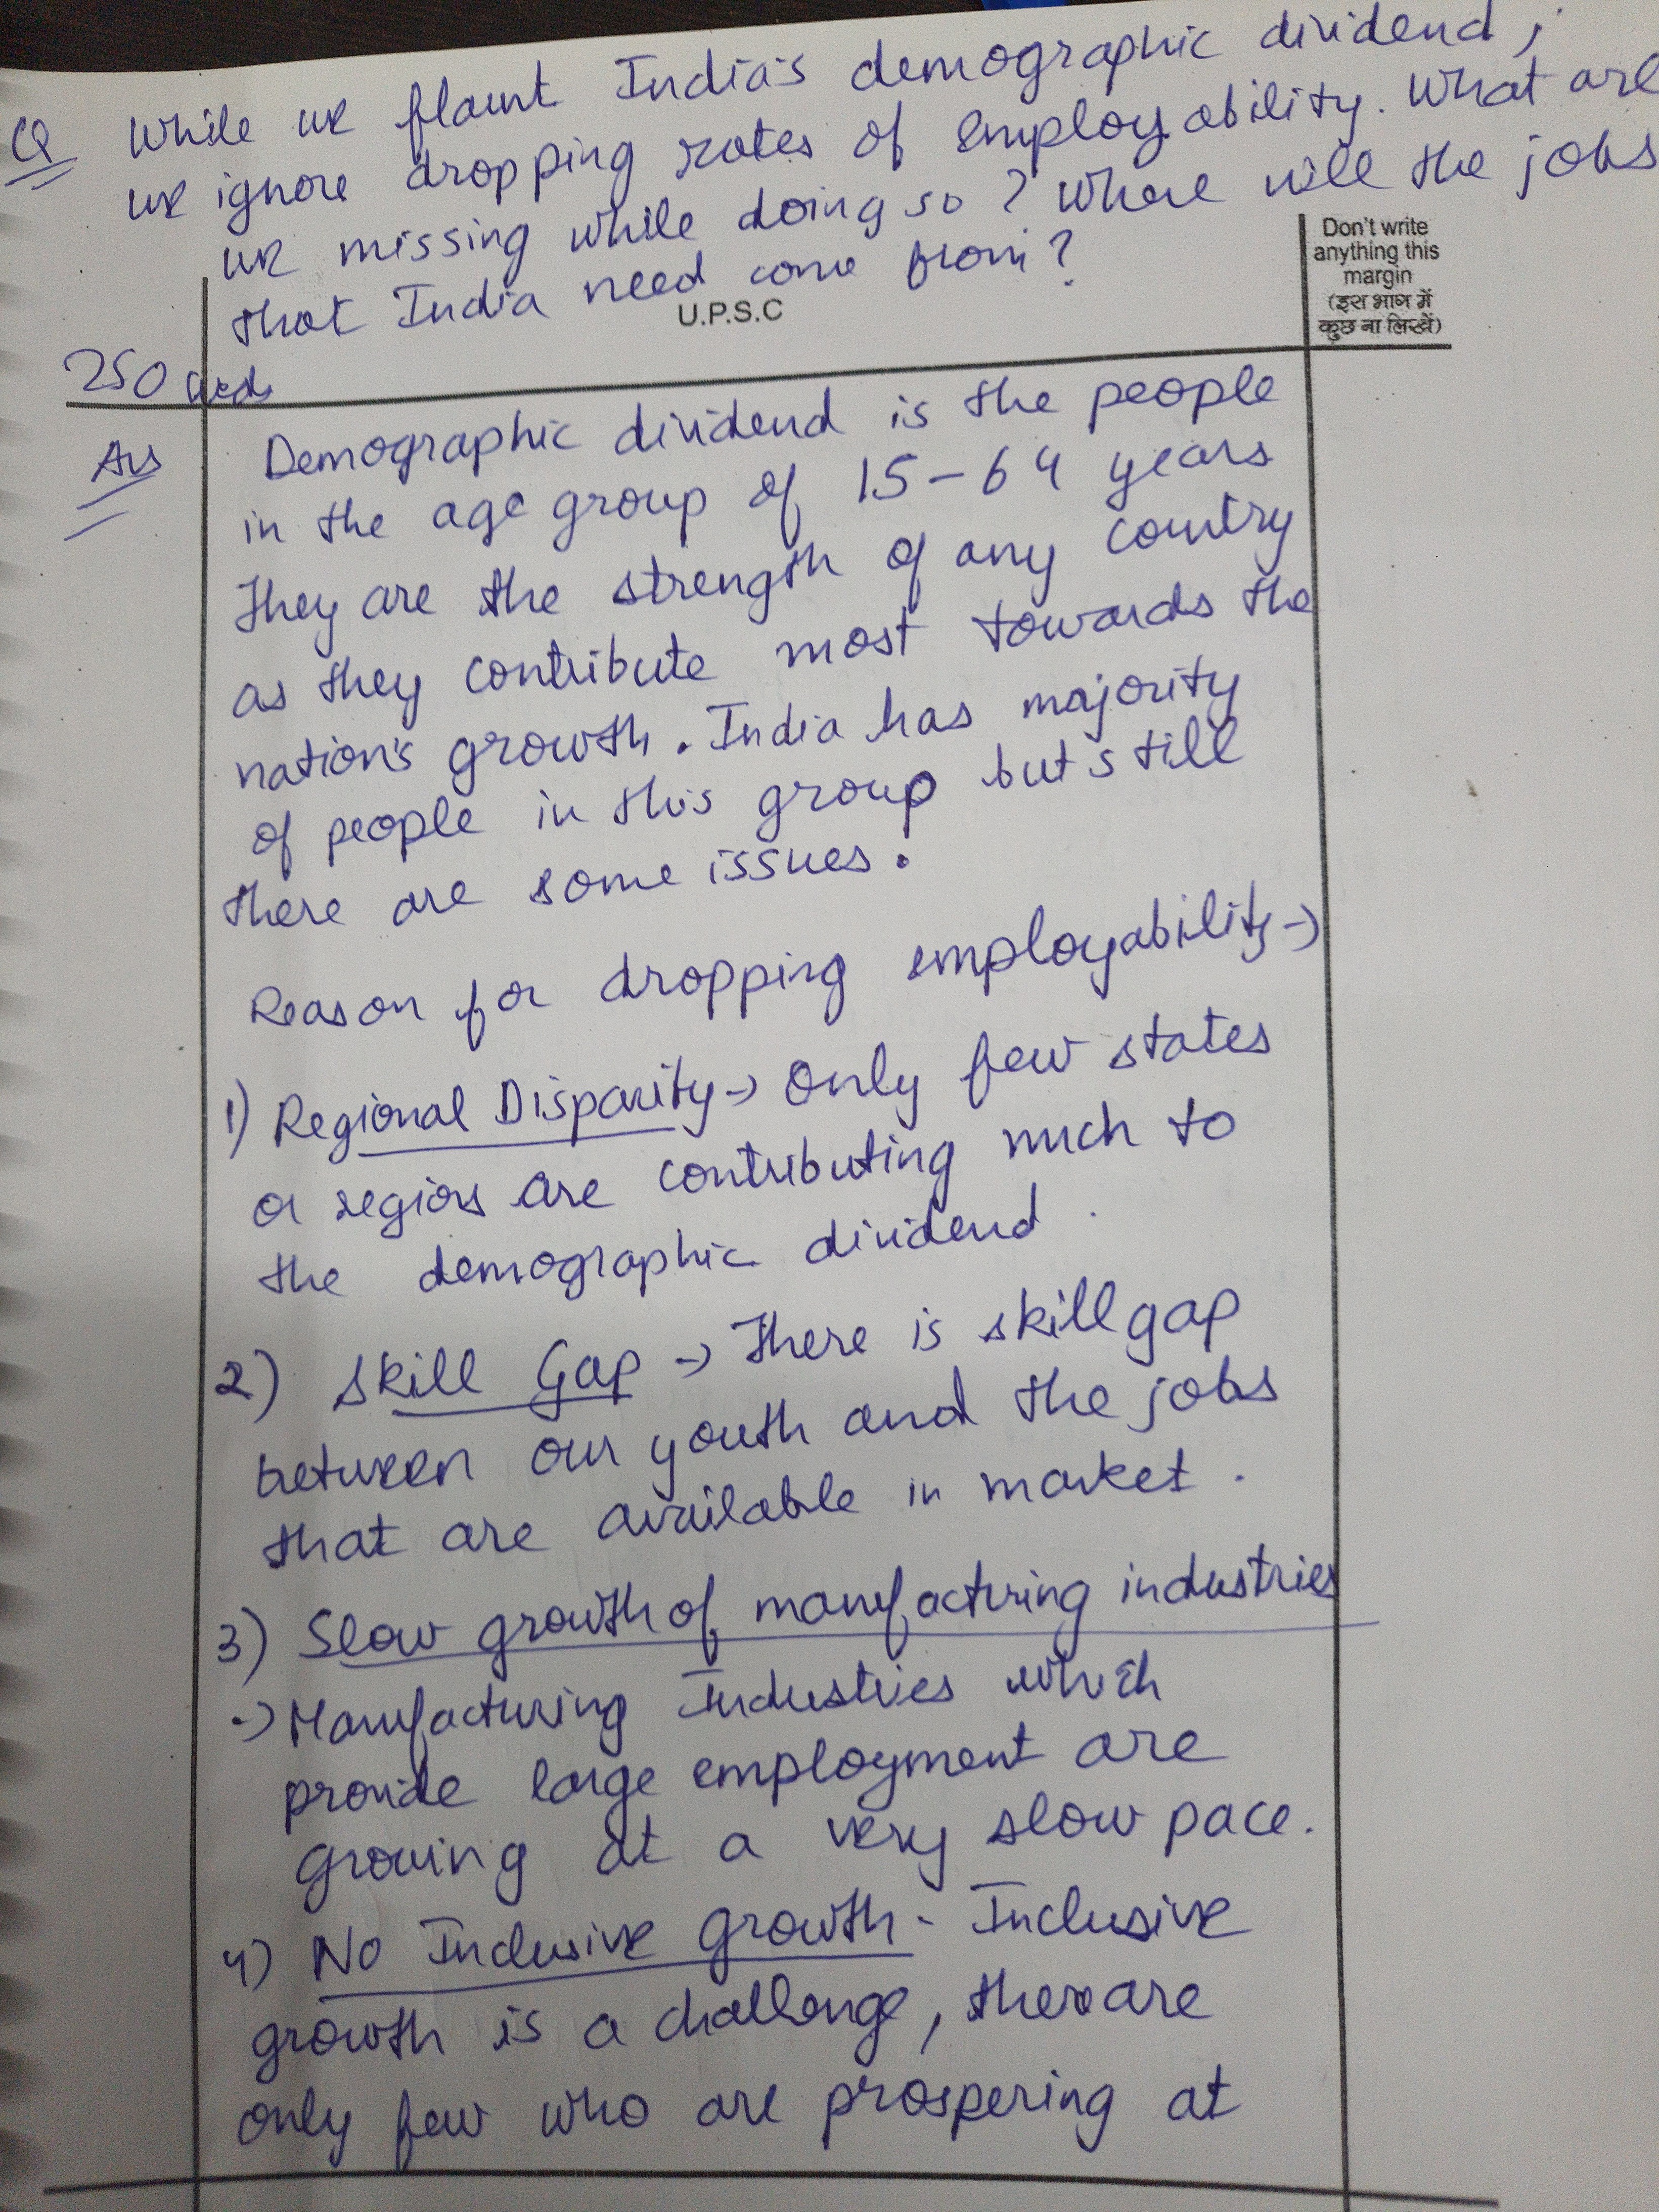 Q While we flaunt India's demographic dividend,
we ignore dropping rates of employability. What are
we missing while doing so? Where will the jobs
that India need come from?
U.P.S.C
Don't write
anything this
margin
(इस भाग में
कुछ ना लिखें)
250 words
Ans Demographic dividend is the people
in the age group of 15-64 years
They are the strength of any country
as they contribute most towards the
nation's growth. India has majority
of people in this group but still
there are some issues.
Reason for dropping employability →
1) Regional Disparity → Only few states
or regions are contributing much to
the demographic dividend.
2) Skill Gap → There is skill gap
between our youth and the jobs
that are available in market.
3) Slow growth of manufacturing industries
→ Manufacturing Industries which
provide large employment are
growing at a very slow pace.
4) No Inclusive growth - Inclusive
growth is a challenge, there are
only few who are prospering at